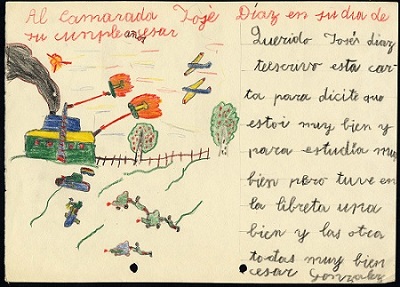 Al camarada José Díaz en su día de
su cumpleaños
Querido José diaz
teescrivo esta car-
ta para dicite que
estoi muy bien y
para estudia mu
bien pero tuve en
la libreta una
bien y las otra
todas muy bien
cesar Gonzalez